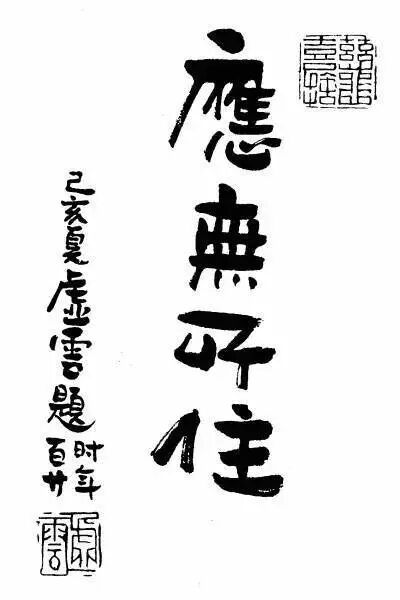 慈悲
喜捨
應無所住
己亥夏虛雲題
时年
百廿
虛雲